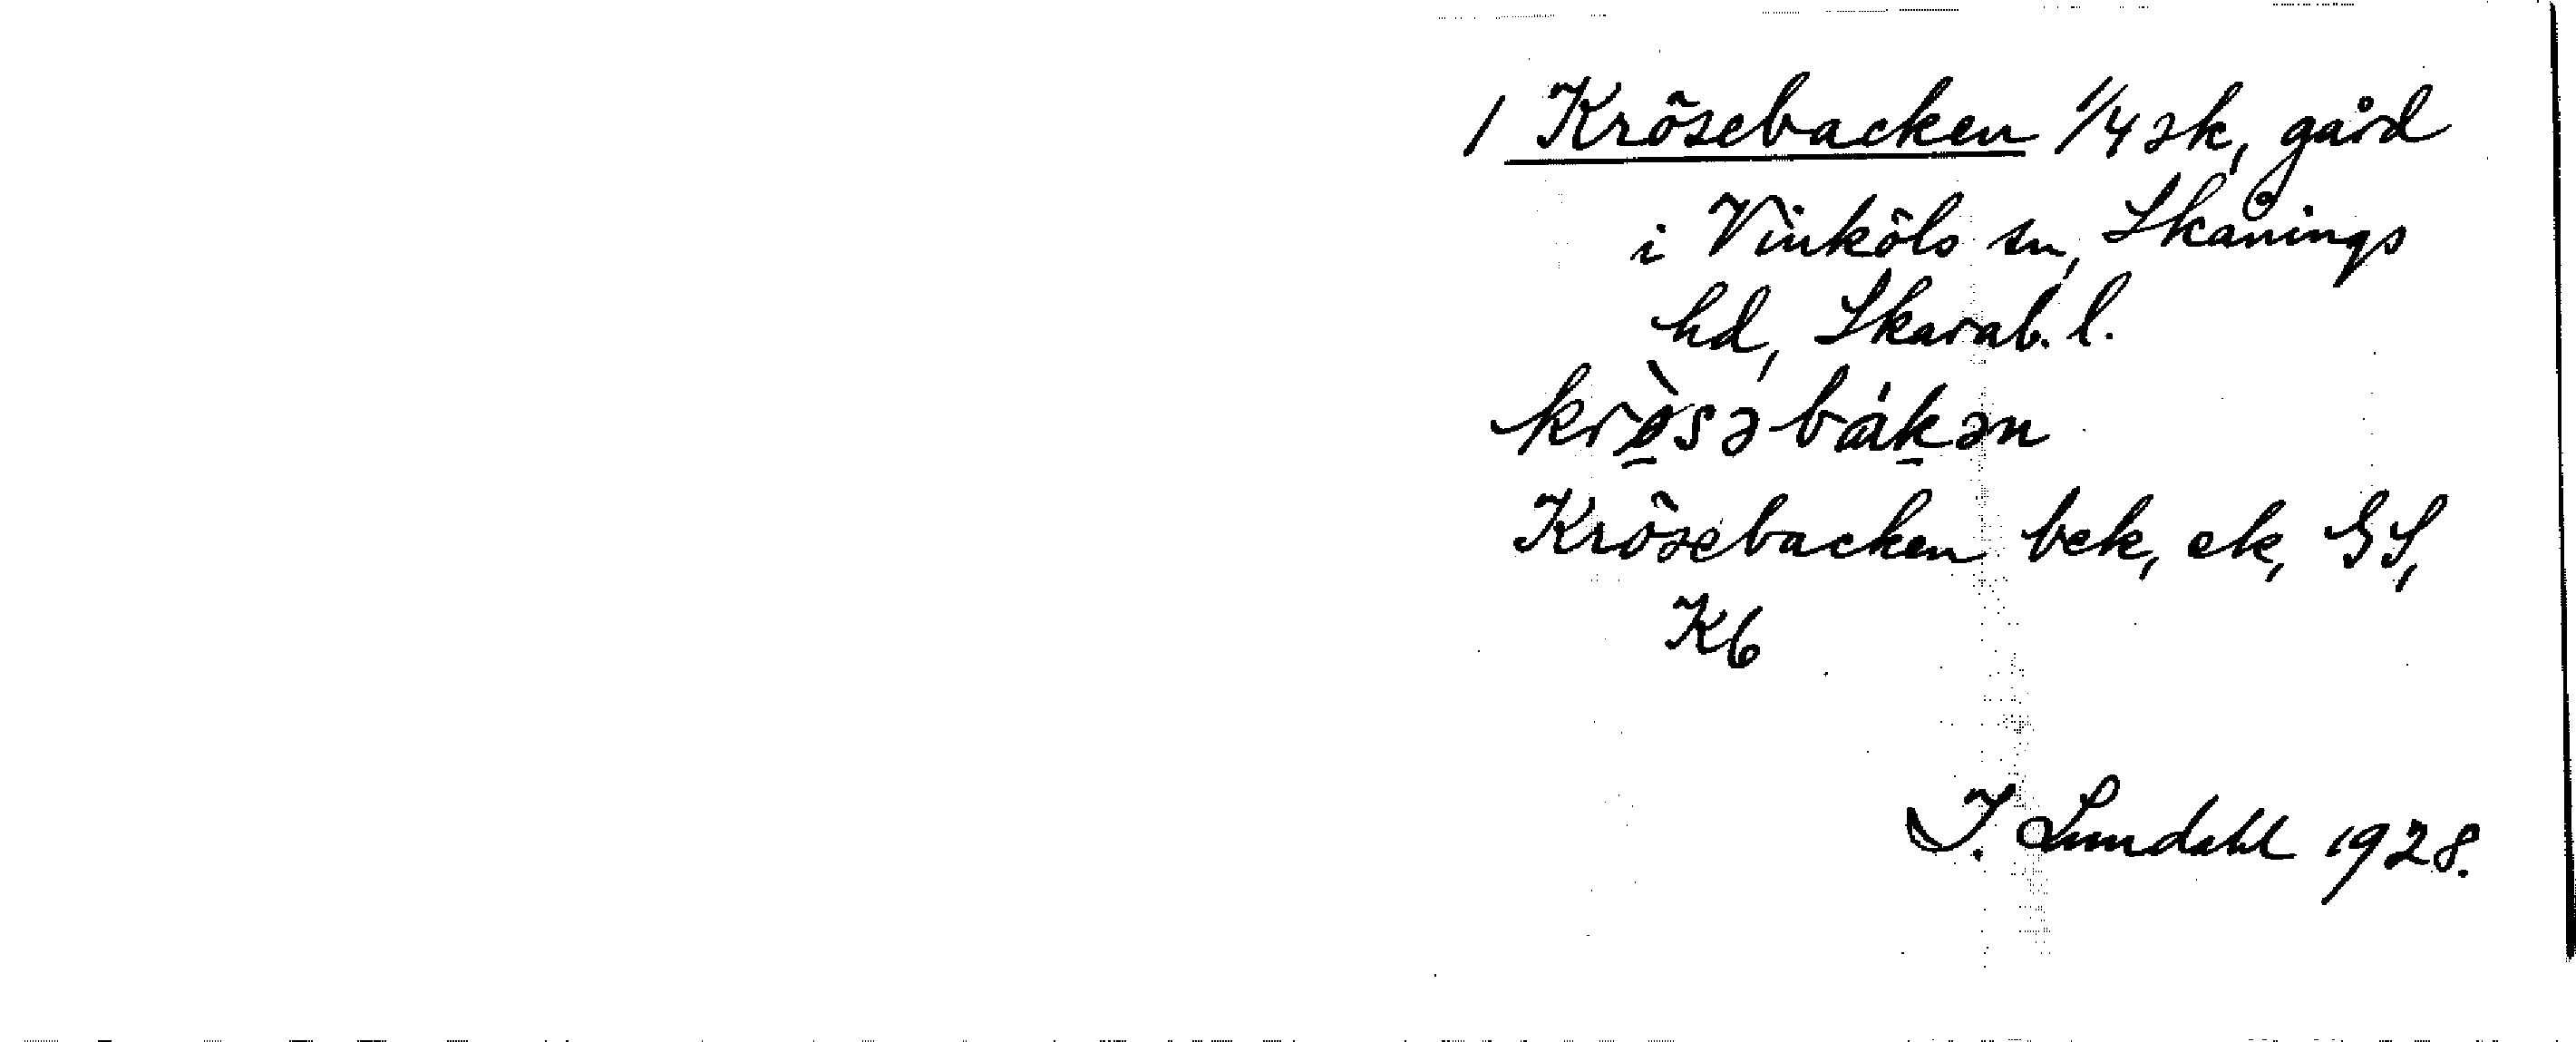 1 Krösebacken 1/4 sk, gård
i Vinköls sn, Skånings
hd, Skarab. l.
krø̀səbákən
Krösebacken bek, ek, GS,
Kb
I. Lundahl 1928.